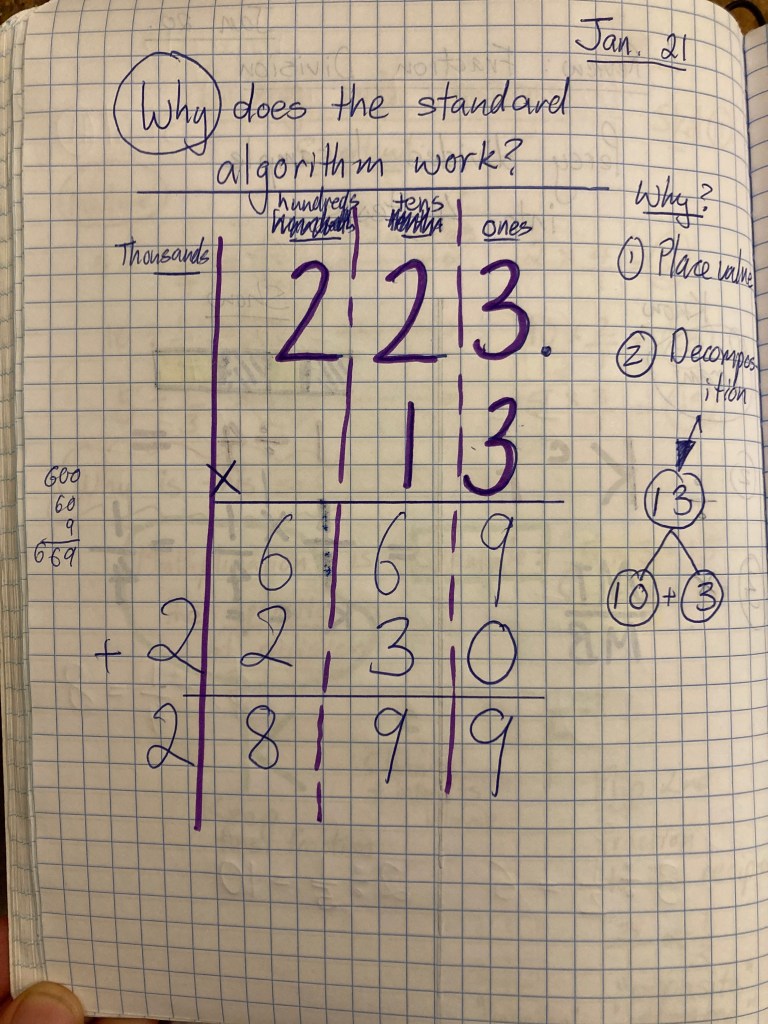 Jan. 21
Why does the standard
algorithm work?
Thousands hundreds tens ones
2 2 3.
× 1 3
6 6 9
+ 2 2 3 0
2 8 9 9
600
60
9
669
Why?
① Place value
② Decompos-
ition
13
10 + 3